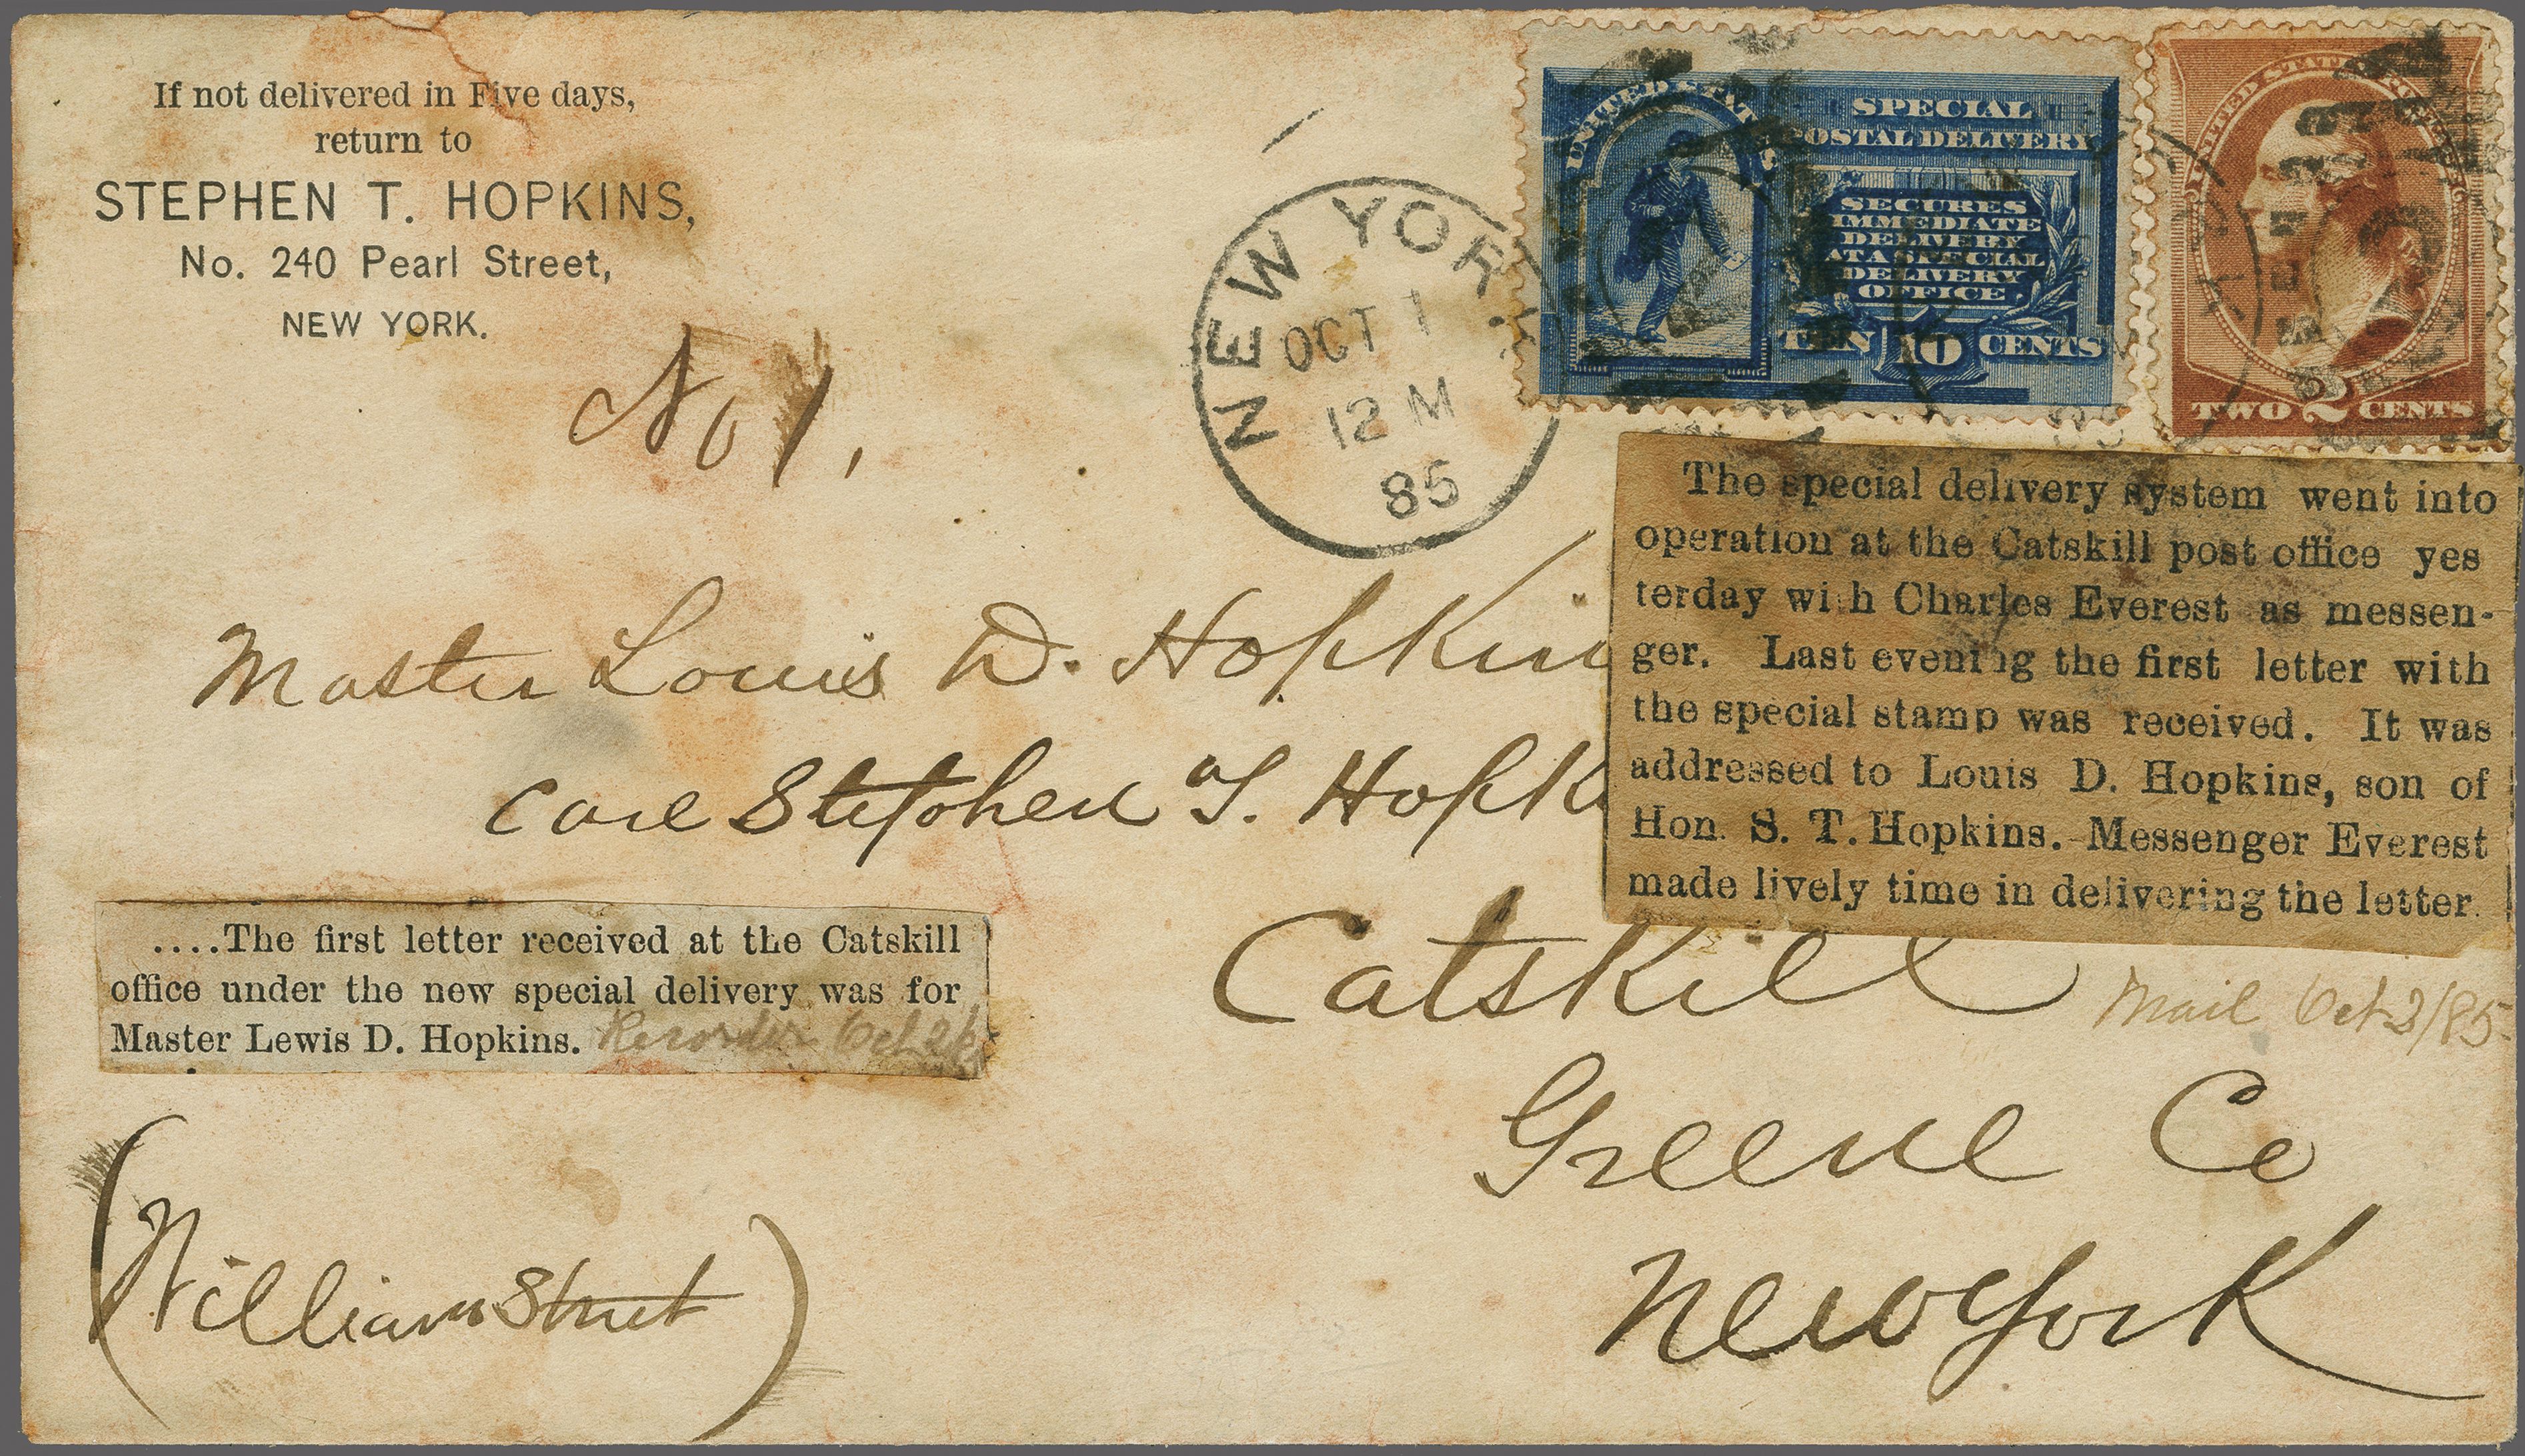 If not delivered in Five days,
return to
STEPHEN T. HOPKINS,
No. 240 Pearl Street,
NEW YORK.
No 1,
NEW YORK
OCT 1
12 M
85
UNITED STATES
SPECIAL
POSTAL DELIVERY
SECURES
IMMEDIATE
DELIVERY
AT A SPECIAL
DELIVERY
OFFICE
TEN 10 CENTS
TWO 2 CENTS
The special delivery system went into
operation at the Catskill post office yes
terday with Charles Everest as messen-
ger. Last evening the first letter with
the special stamp was received. It was
addressed to Louis D. Hopkins, son of
Hon. S. T. Hopkins. Messenger Everest
made lively time in delivering the letter.
Master Louis D. Hopkin
Care Stephen T. Hopk
Catskill
Mail Oct 3/85
Greene Co
New York
....The first letter received at the Catskill
office under the new special delivery was for
Master Lewis D. Hopkins. Recorder Oct 2
(William Street)